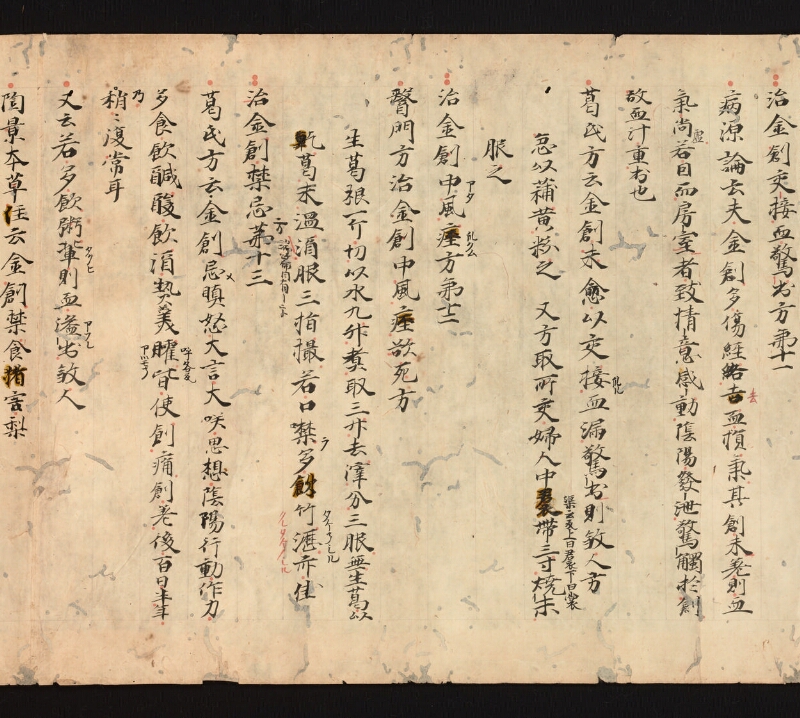 治金創交接血驚出方第十一
病源論云夫金創多傷經絡去血損氣其創未差則血
氣尚若因而房室者致情意感動陰陽發泄驚觸於創
故血汁重出也
葛氏方云金創未愈以交接血漏驚出則敘人方
急以蒲黃粉之 又方取所交婦人中裙帶三寸燒末
服之
治金創中風痙方第十二
醫門方治金創中風痙欲死方
生葛根一斤切以水九升煮取三升去滓分三服無生葛以
乾葛末溫酒服三指撮若口噤多飲竹瀝亦佳
治金創禁忌第十三
葛氏方云金創忌嗔怒大言大咲思想陰陽行動作力
多食飲鹹酸飲酒熱羹臛皆使創痛創差後百日半年
乃稍〻復常耳
又云若多飲粥輩則血溢出敘人
陶景本草注云金創禁食猪害梨